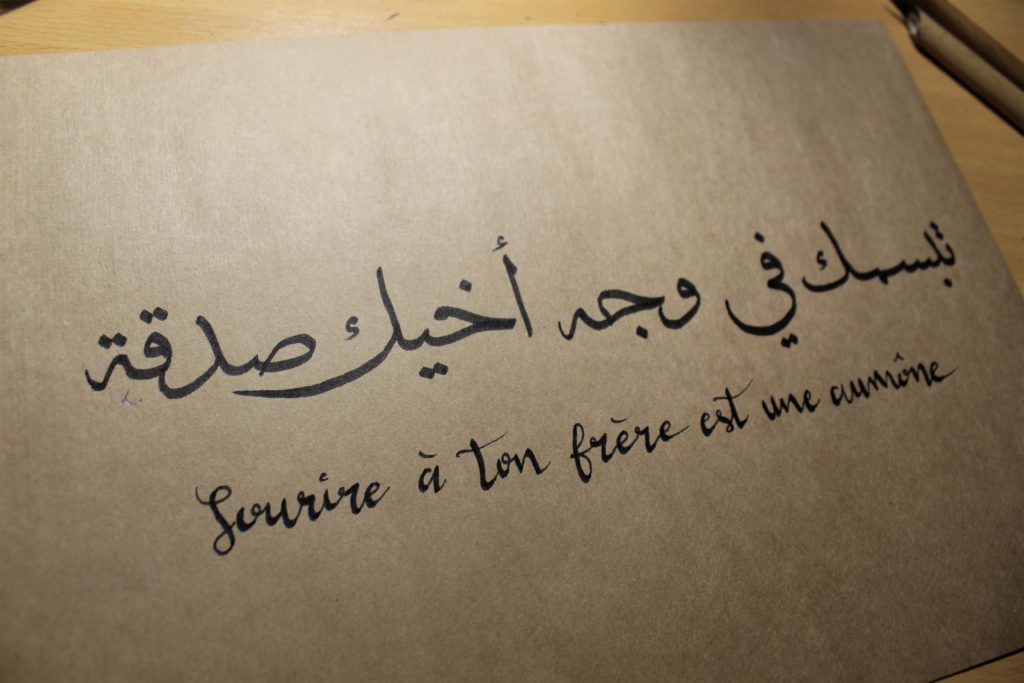 تبسمك في وجه أخيك صدقة
Sourire à ton frère est une aumône